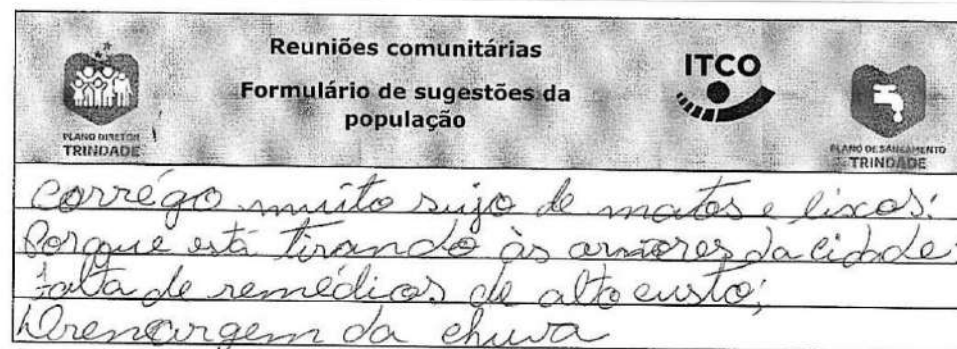 Reuniões comunitárias
Formulário de sugestões da
população
ITCO
PLANO DIRETOR
TRINDADE
PLANO DE SANEAMENTO
TRINDADE
corrégo muito sujo de matos e lixos;
Porque está tirando às arvores da cidade;
falta de remédios de alto custo;
Drenargem da chuva